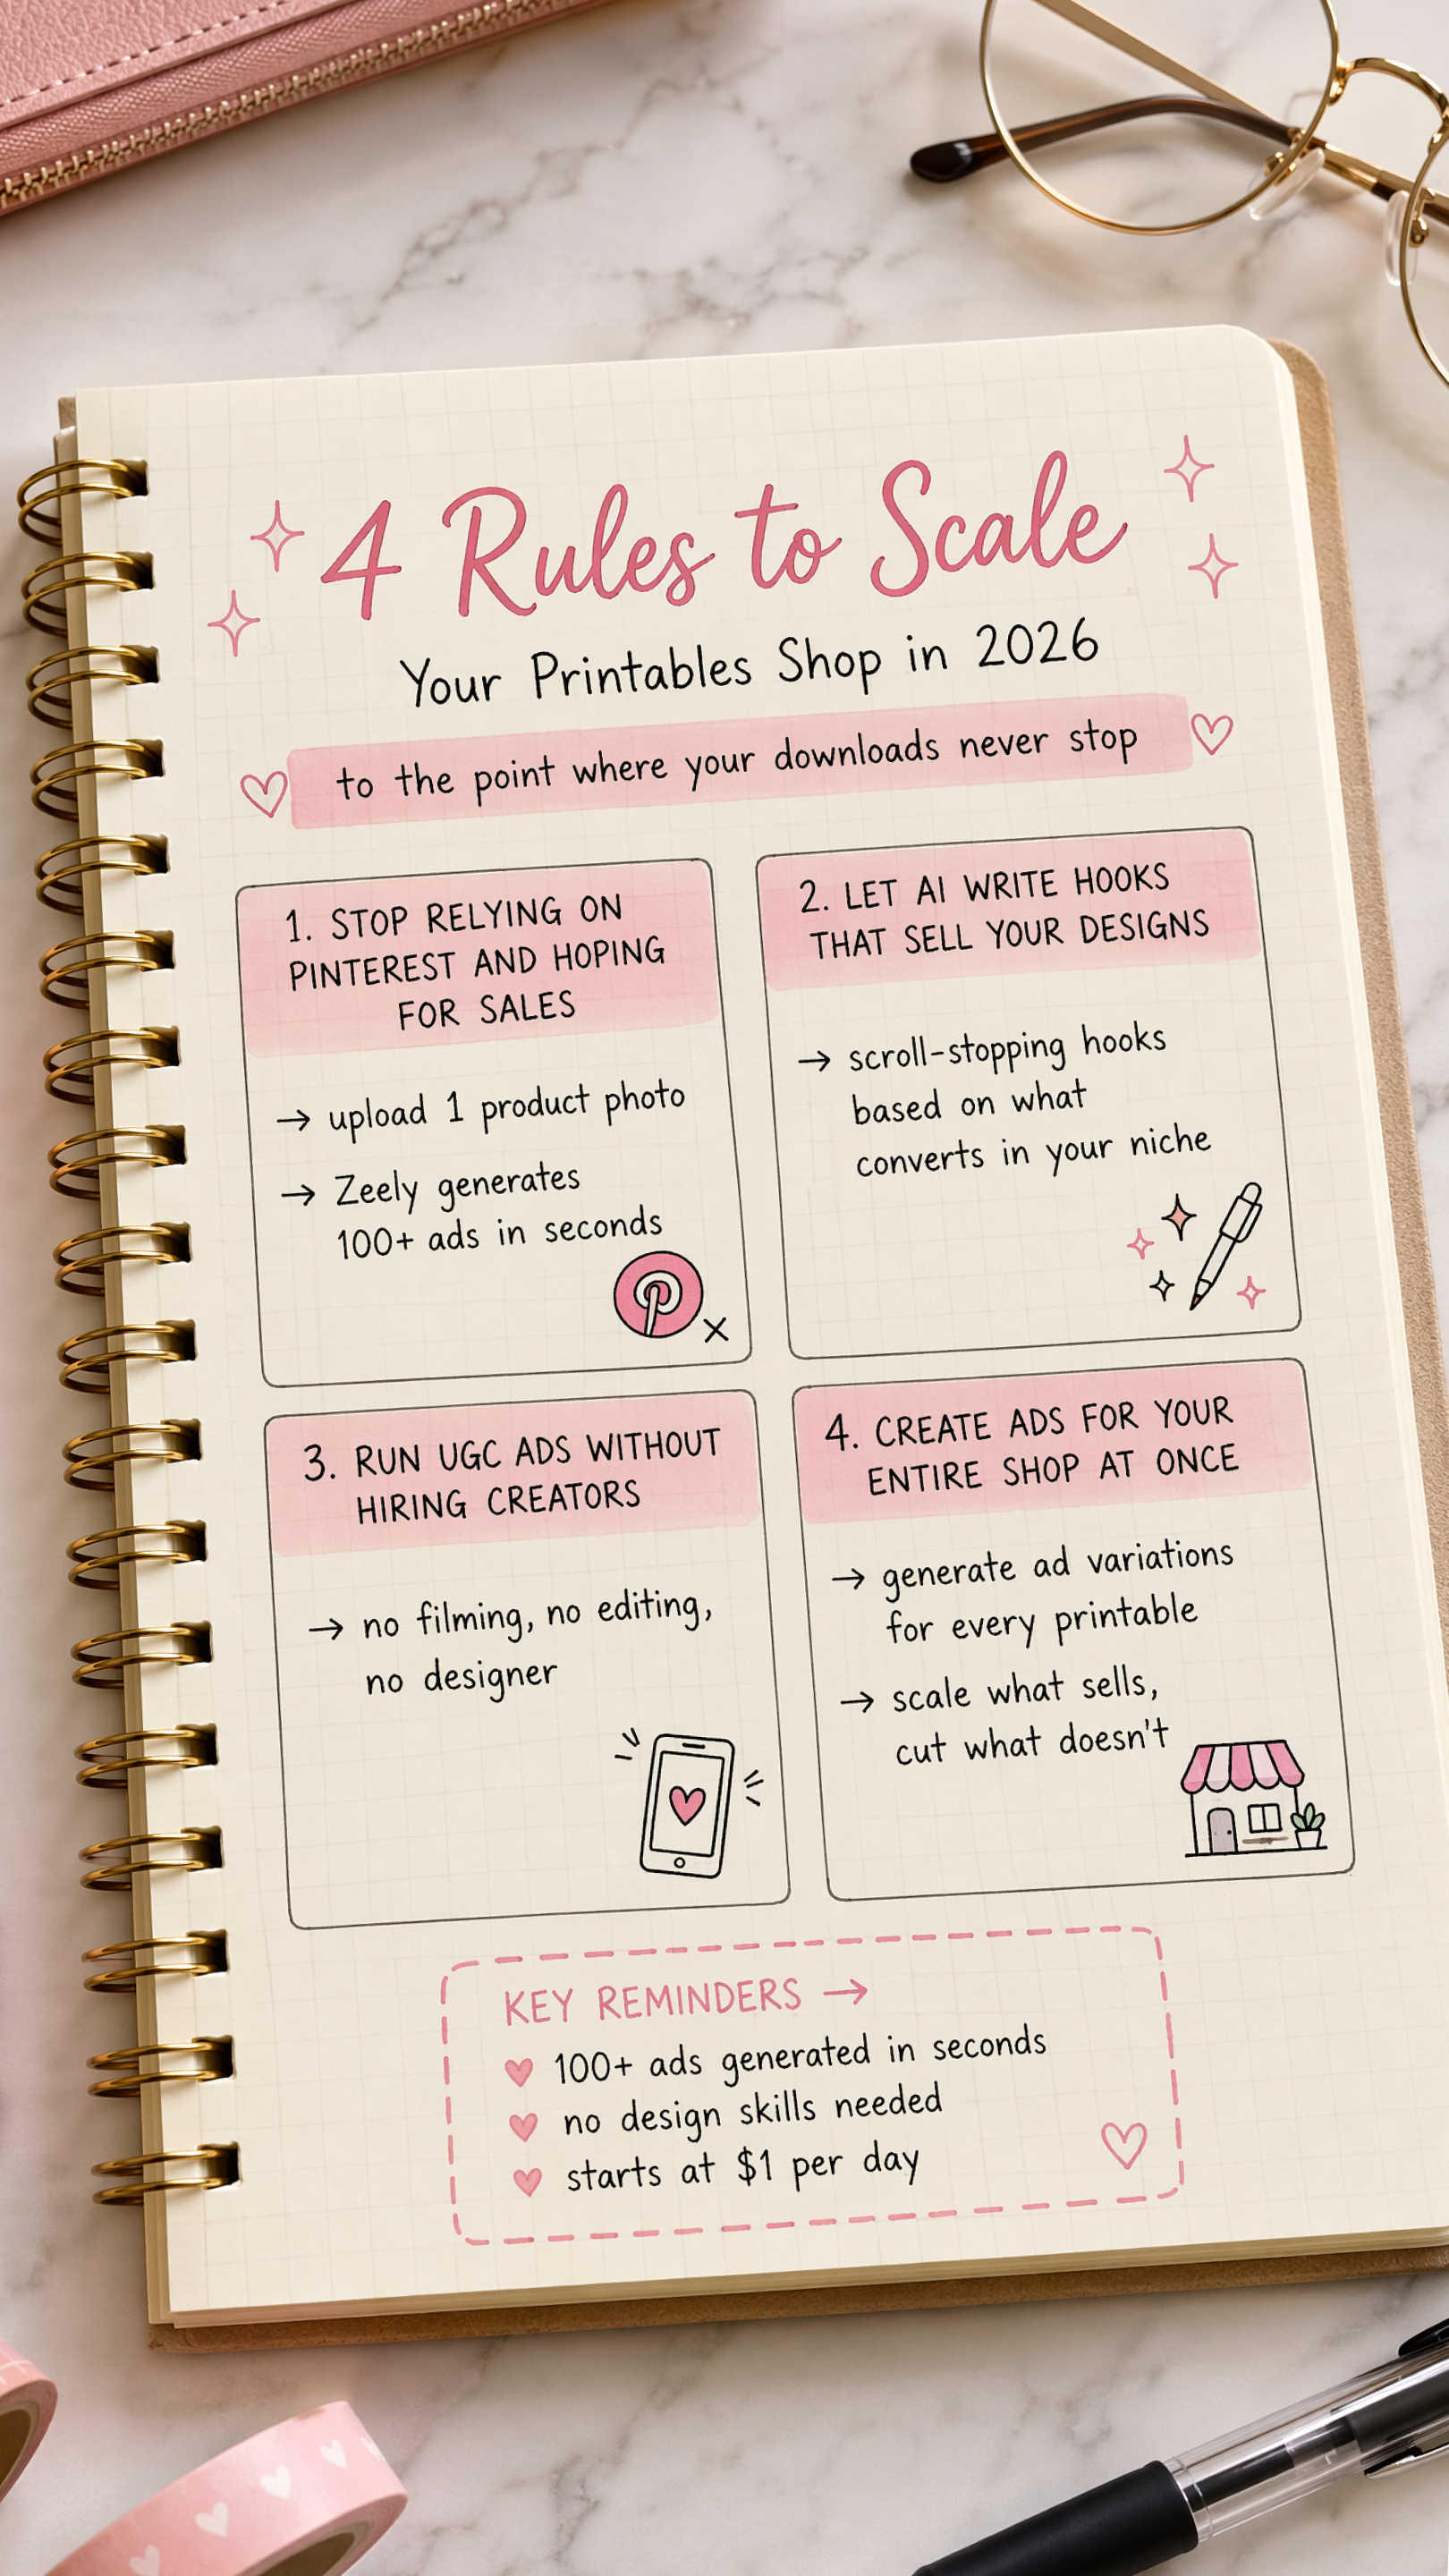 4 Rules to Scale
Your Printables Shop in 2026
to the point where your downloads never stop
1. STOP RELYING ON
PINTEREST AND HOPING
FOR SALES
→ upload 1 product photo
→ Zeely generates
100+ ads in seconds
2. LET AI WRITE HOOKS
THAT SELL YOUR DESIGNS
→ scroll-stopping hooks
based on what
converts in your niche
3. RUN UGC ADS WITHOUT
HIRING CREATORS
→ no filming, no editing,
no designer
4. CREATE ADS FOR YOUR
ENTIRE SHOP AT ONCE
→ generate ad variations
for every printable
→ scale what sells,
cut what doesn't
KEY REMINDERS →
100+ ads generated in seconds
no design skills needed
starts at $1 per day